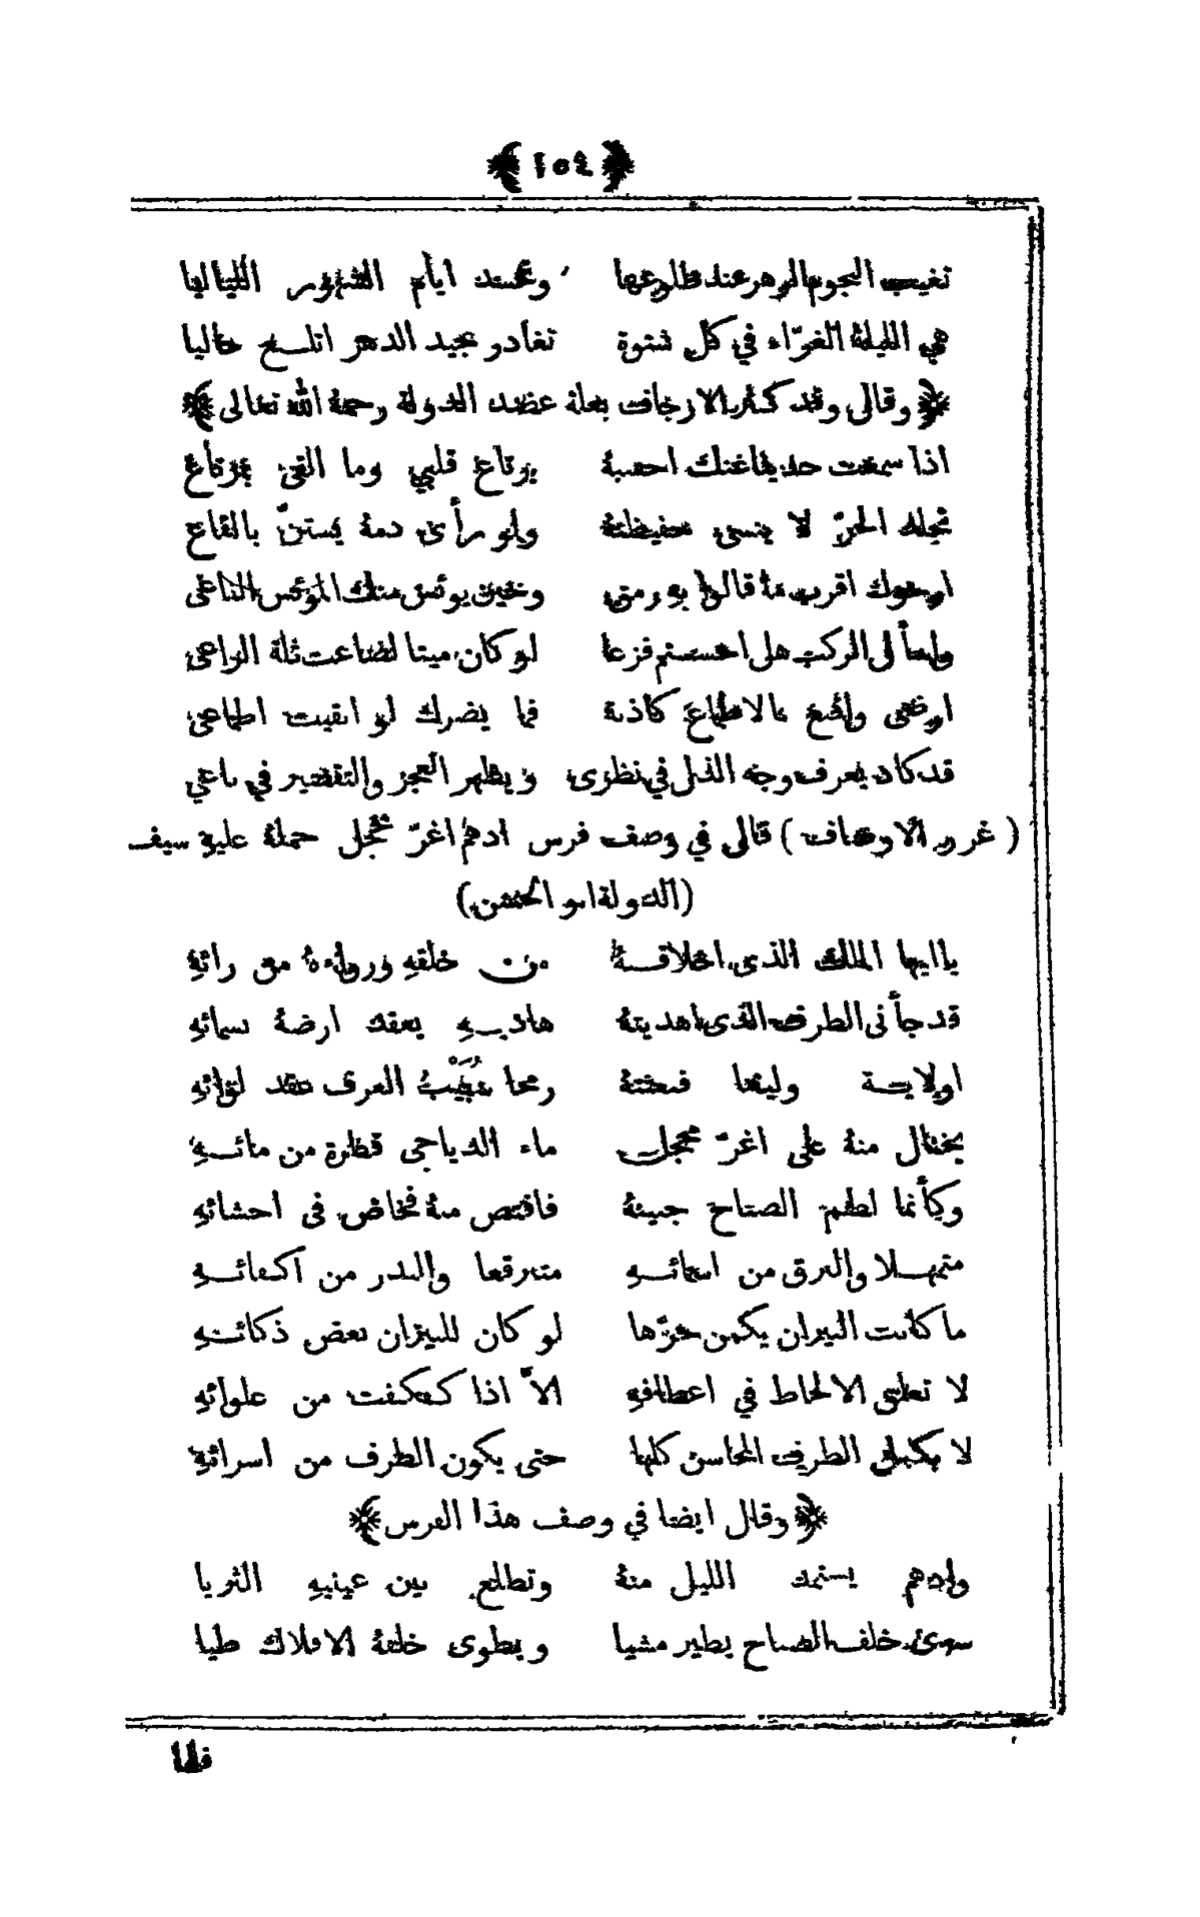 ﴿ ١٥٤ ﴾
تغيب النجوم الزهر عند طلوعها وتحسد ايام الشهور اللياليا
هي الليلة الغرّاء في كل شتوة تغادر بجيد الدهر اتلع حاليا
﴿ وقال وقد كثر الارجاف بعلة عضد الدولة رحمة الله تعالى ﴾
اذا سمعت حديثا عنك احسبة يرتاع قلبي وما القى بمرتاع
مثلك الحرّ لا ينسى حفيظتة ولو رأى دمة يستنّ بالقاع
ارجوك اقرب ما قالوا به رمق وحين يوئس منك المؤئس الناعى
واسأل الركب هل احسستم فزعا لو كان ميتا لضاعت ثلة الراعى
ارضى واقنع بالاطماع كاذبة فما يضرك لو ابقيت اطماعى
قد كاد يعرف وجه الذل في نظرى ويظهر العجز والتقصير في باعي
( غرر الاوصاف ) قال في وصف فرس ادهم اغرّ محجل حملة عليه سيف
(الدولة ابو الحسن)
ياايها الملك الذى اخلاقـة من خلقهِ ورواءة من رائهِ
قد جأنى الطرف الذى اهديتة هاديـهِ يعقد ارضة بسمائهِ
اولايـة وليتنا فبعثتة رمحا سَبِيْبُ العرف عقد لوائهِ
يختال منة على اغرّ محجل ماء الدياجى قطرة من مائـهِ
وكأنما لطم الصباح جبينة فاقتص منة فخاض فى احشائهِ
متمهـلا والبرق من اسمائـهِ متبرقعا والبدر من اكفائـهِ
ما كانت النيران يكمن حرّها لو كان للنيران بعض ذكائـهِ
لا تعلق الالحاظ في اعطافهِ الاّ اذا كفكفت من غلوائهِ
لا يكمل الطرف المحاسن كلها حتى يكون الطرف من اسرائهِ
﴿ وقال ايضا في وصف هذا الفرس ﴾
وادهم يستمد الليل منة وتطلع بين عينيهِ الثريا
سرى خلف الصباح يطير مشيا ويطوى خلفة الافلاك طيا
فلما